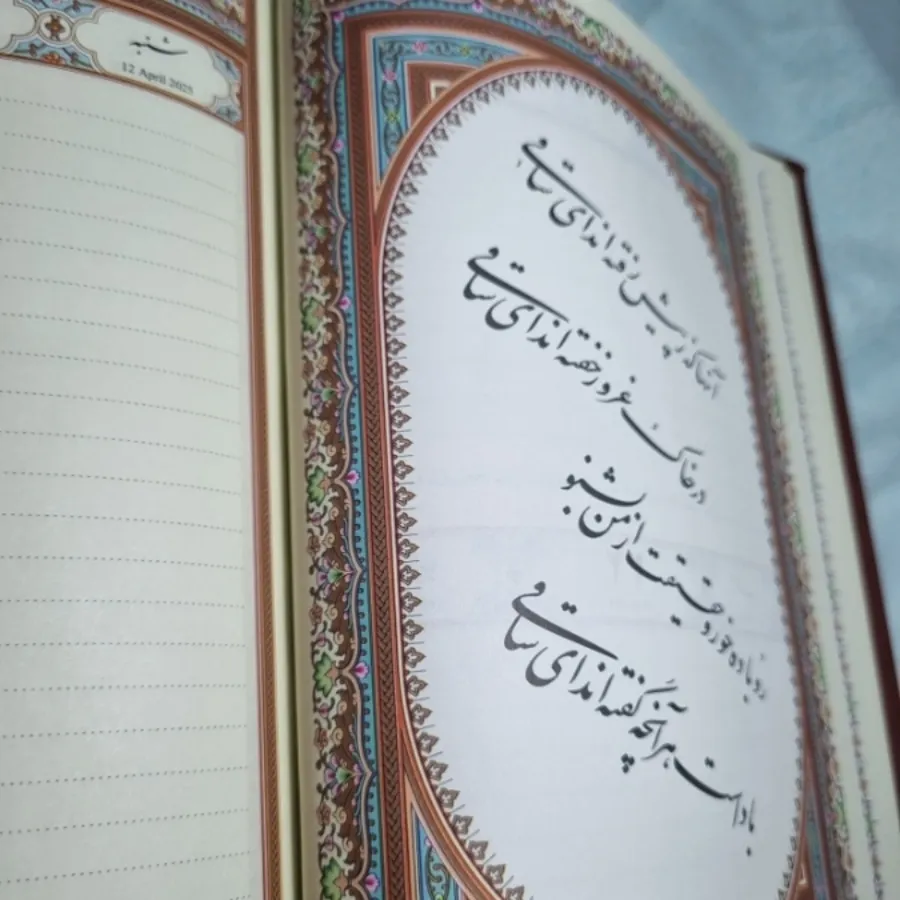 شنبه
12 April 2025
آنها که ز پیش رفته اند ای ساقی
در خاک غرور خفته اند ای ساقی
رو باده خور و حقیقت از من بشنو
باد است هر آنچه گفته اند ای ساقی